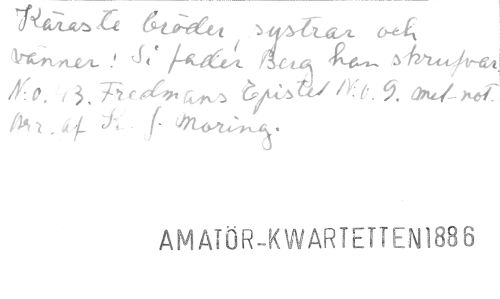 Käraste bröder, systrar och
vänner! Si fader Berg han skrufvar
N:o. 43. Fredmans Epistel N:o. 9. mel-not.
Arr. af K. J. Moring.
AMATÖR-KWARTETTEN1886